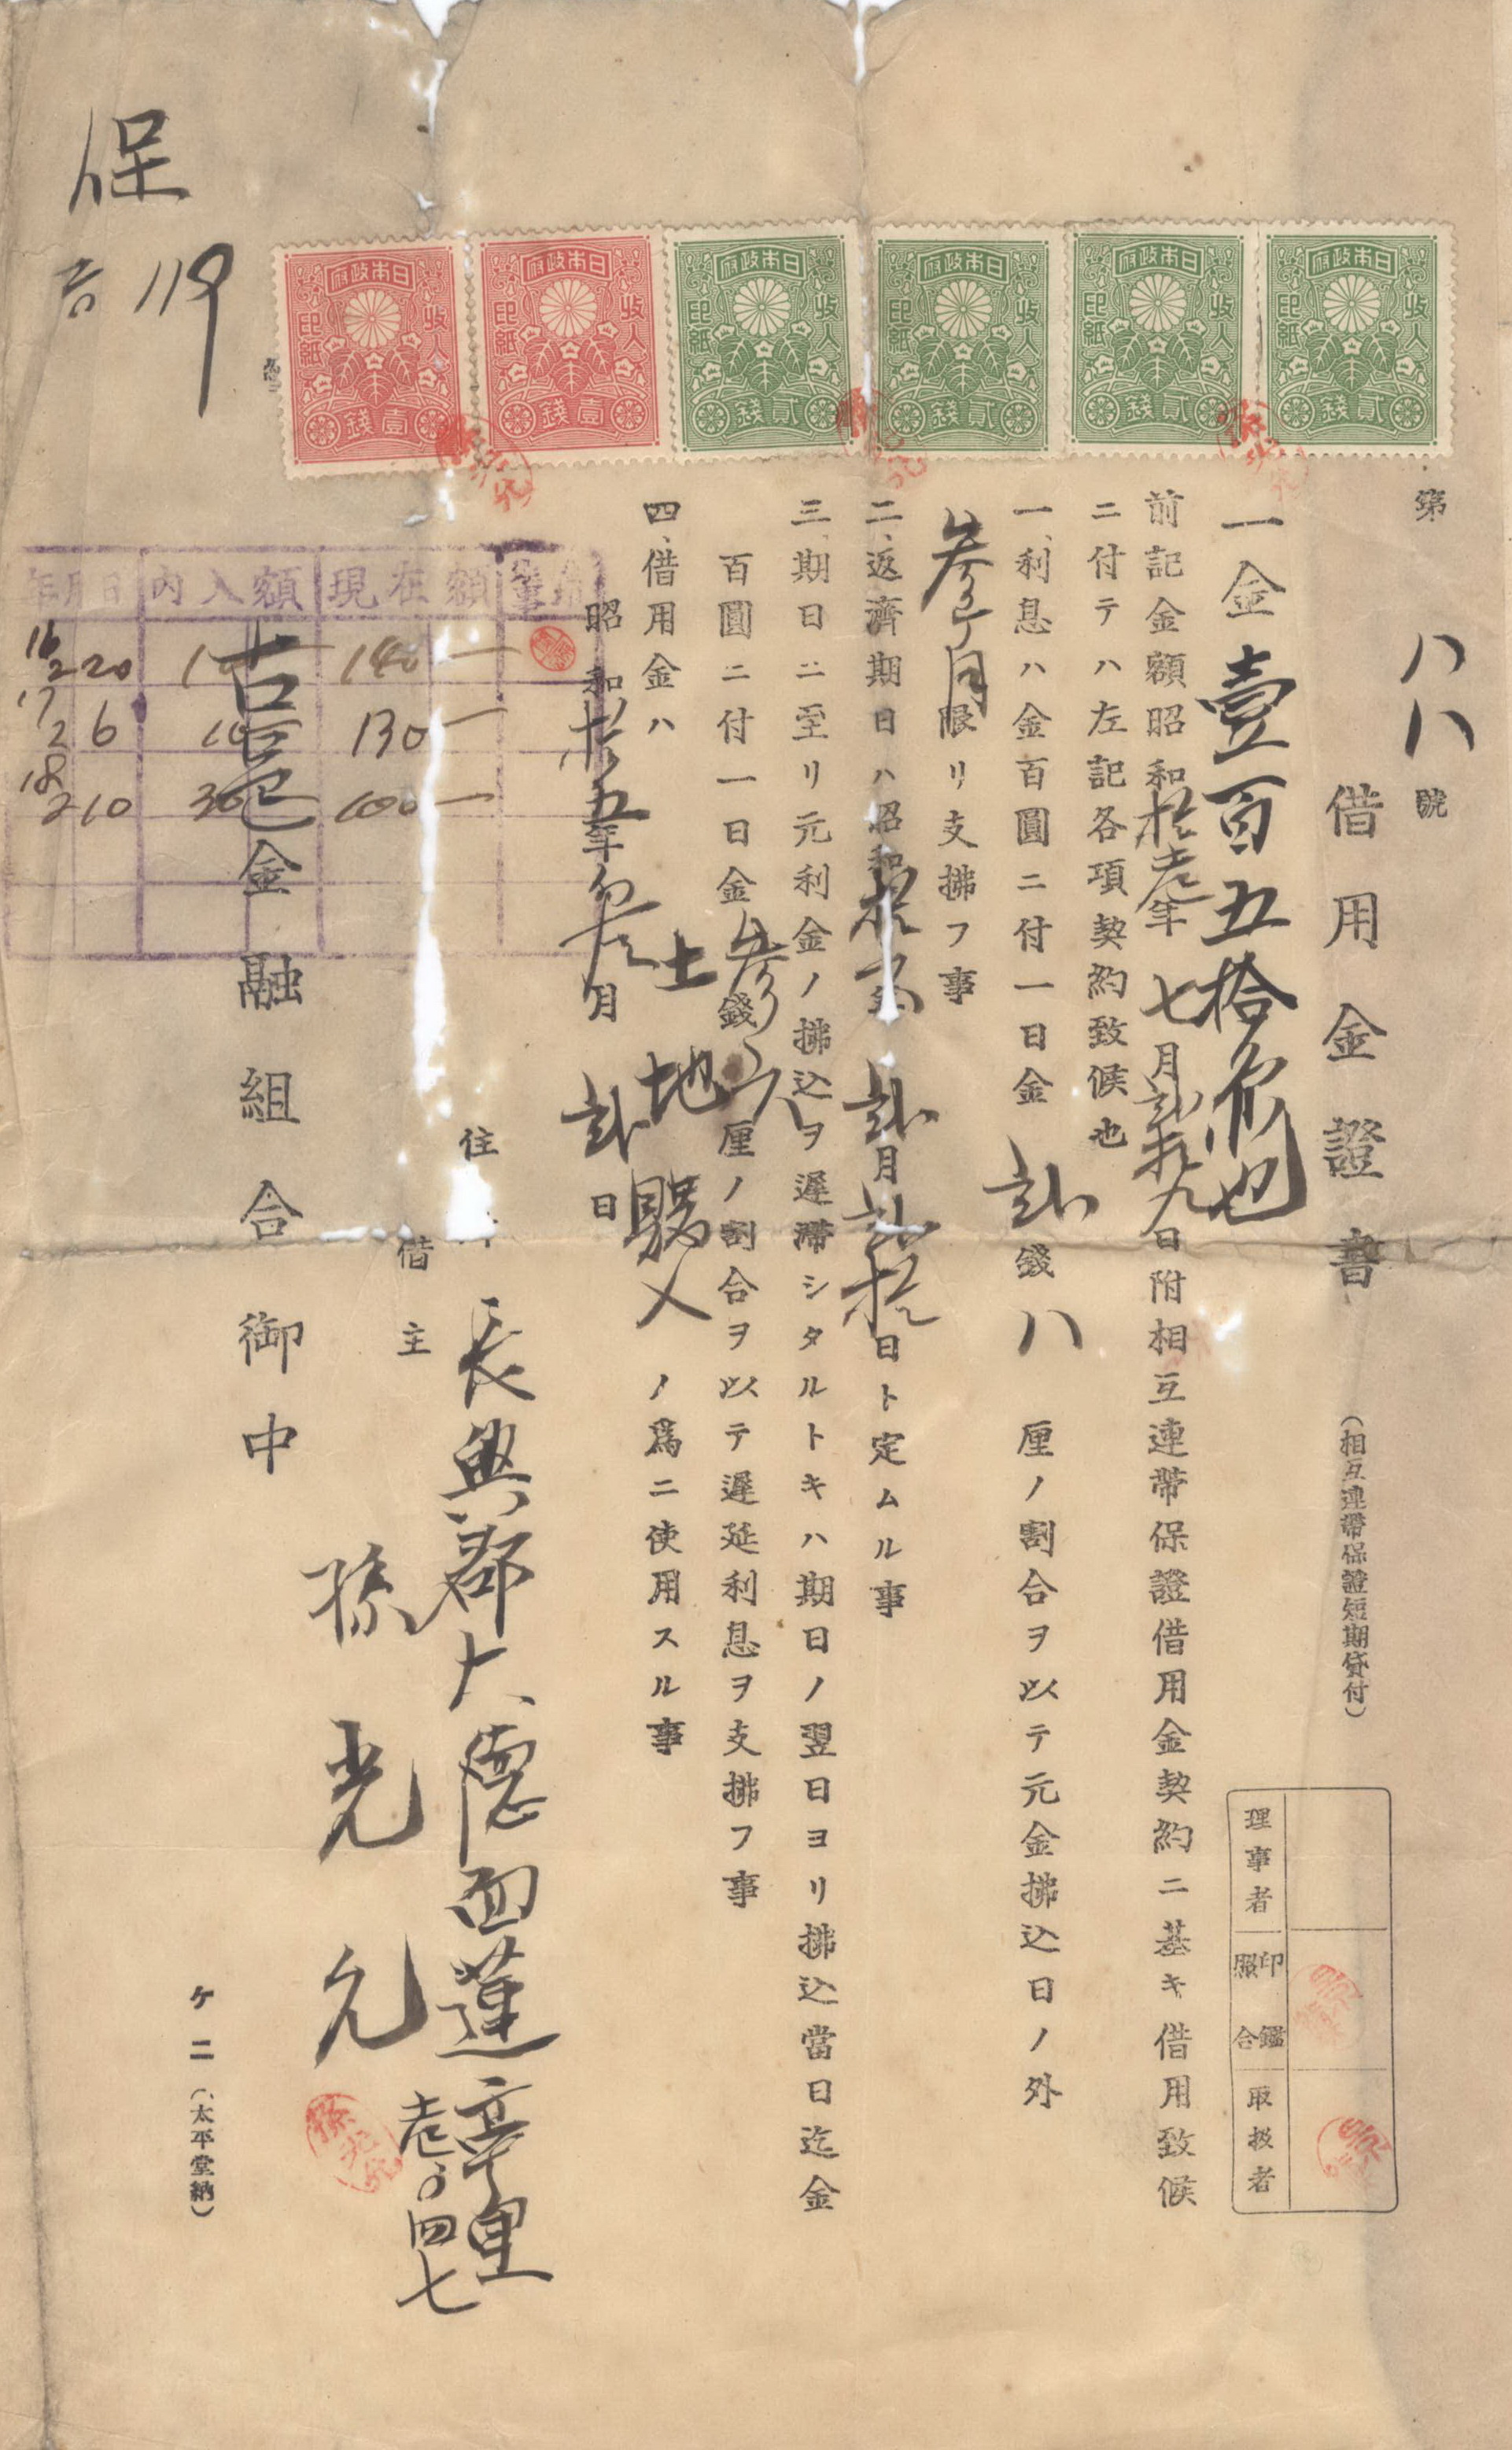 第八八號
借用金證書（相互連帶保證短期貸付）
一金壹百五拾円也
前記金額昭和拾壱年七月貳拾九日附相互連帶保證借用金契約ニ基キ借用致候
ニ付テハ左記各項契約致候也
一、利息ハ金百圓ニ付一日金貳錢八厘ノ割合ヲ以テ元金拂込日ノ外
參月限リ支拂フ事
二、返濟期日ハ昭和拾年貳月貳拾日ト定ムル事
三、期日ニ至リ元利金ノ拂込ヲ遲滯シタルトキハ期日ノ翌日ヨリ拂込當日迄金
百圓ニ付一日金參錢八厘ノ割合ヲ以テ遲延利息ヲ支拂フ事
四、借用金ハ土地買入ノ爲ニ使用スル事
昭和拾五年參月貳日
住
長興郡大德面蓮亭里
壱ノ四七
借主
孫光允
古邑金融組合御中
ケ二（太平堂納）
理事者
印鑑照合
取扱者
保
古 119
日本政府
收入印紙
壹錢
日本政府
收入印紙
壹錢
日本政府
收入印紙
貳錢
日本政府
收入印紙
貳錢
日本政府
收入印紙
貳錢
日本政府
收入印紙
貳錢
年月日 內入額 現在額
16 2 20 10 140
17 2 6 10 130
18 2 10 30 100